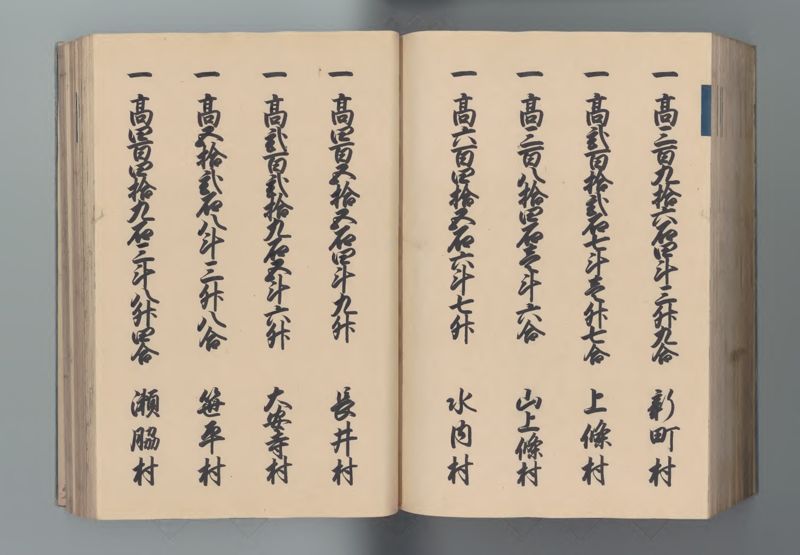 一 高三百九拾六石四斗三升九合 新町村
一 高弐百拾弐石七斗壱升七合 上條村
一 高三百八拾四石壱斗六合 山上條村
一 高六百四拾五石六斗七升 水内村
一 高四百五拾五石四斗九升 長井村
一 高弐百弐拾九石五斗六升 大安寺村
一 高五拾弐石八斗三升八合 笹平村
一 高四百四拾九石三斗八升四合 瀬脇村